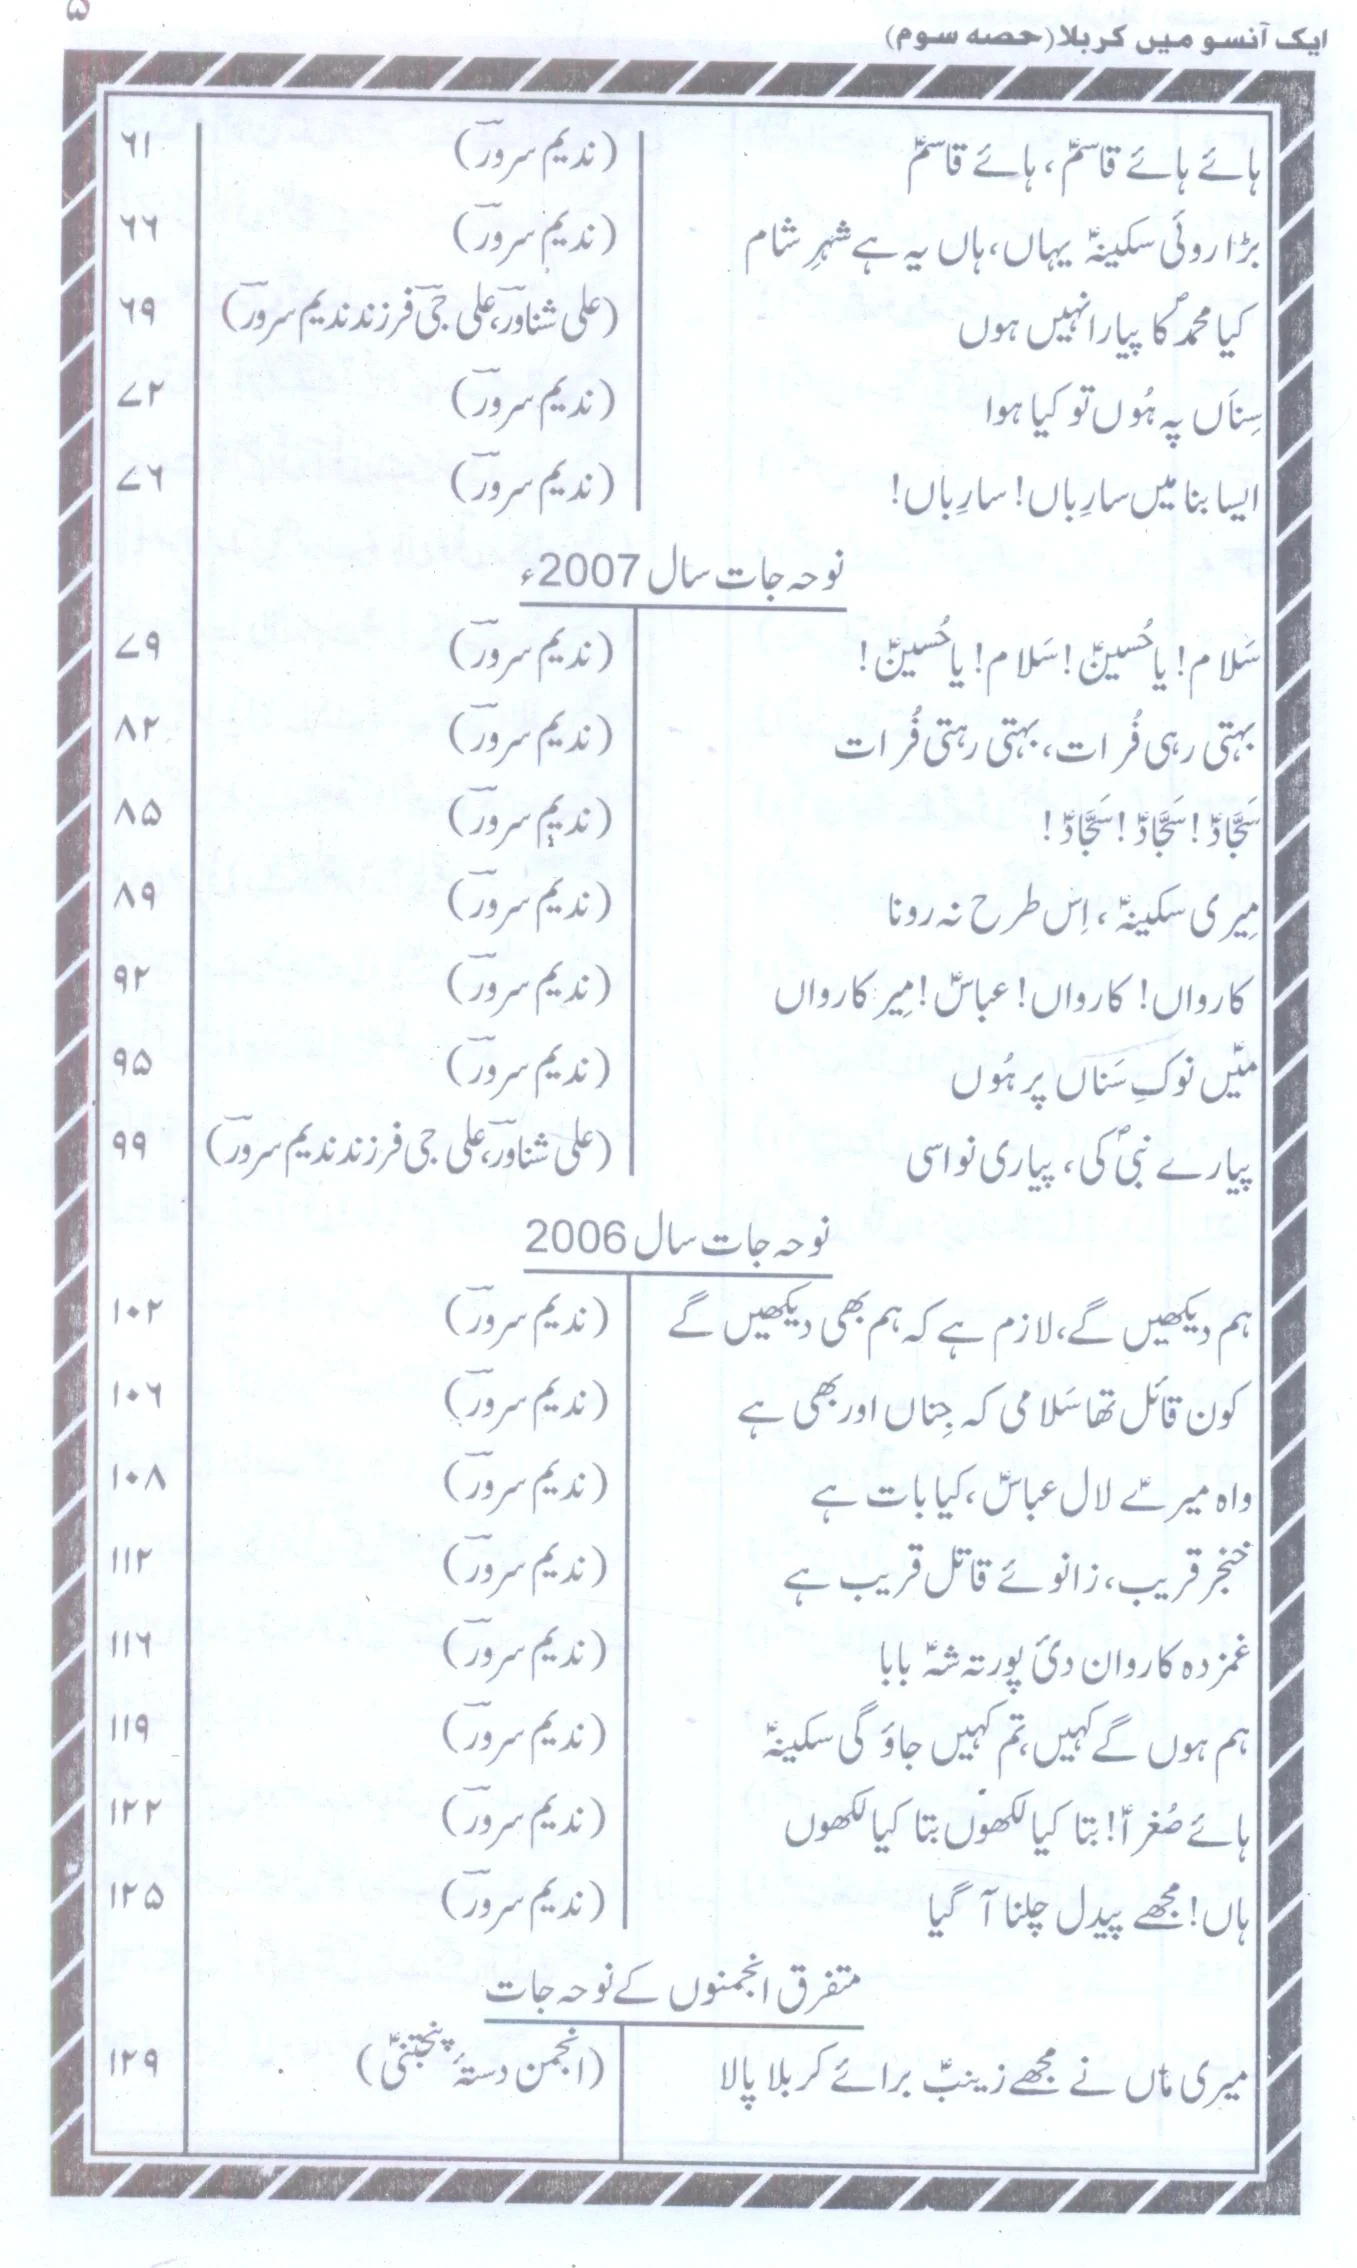 ایک آنسو میں کربلا (حصہ سوم) ۵
ہائے ہائے قاسمؑ، ہائے قاسمؑ (ندیم سرورؔ) ۶۱
بڑا روئی سکینہؑ یہاں، ہاں یہ ہے شہرِ شام (ندیم سرورؔ) ۶۶
کیا محمدؐ کا پیارا نہیں ہوں (علی شناورؔ، علی جیؔ فرزند ندیم سرورؔ) ۶۹
سِناں پہ ہُوں تو کیا ہوا (ندیم سرورؔ) ۷۲
ایسا بنا میں سارِباں! سارِباں! (ندیم سرورؔ) ۷۶
نوحہ جات سال 2007ء
سَلام! یا حُسینؑ! سَلام! یا حُسینؑ! (ندیم سرورؔ) ۷۹
بہتی رہی فُرات، بہتی رہتی فُرات (ندیم سرورؔ) ۸۲
سَجَّادؑ! سَجَّادؑ! سَجَّادؑ! (ندیم سرورؔ) ۸۵
مِیری سکینہؑ، اِس طرح نہ رونا (ندیم سرورؔ) ۸۹
کارواں! کارواں! عباسؑ! مِیر کارواں (ندیم سرورؔ) ۹۲
میں نوکِ سَناں پر ہُوں (ندیم سرورؔ) ۹۵
پیارے نبیؐ کی، پیاری نواسی (علی شناورؔ، علی جی فرزند ندیم سرورؔ) ۹۹
نوحہ جات سال 2006
ہم دیکھیں گے، لازم ہے کہ ہم بھی دیکھیں گے (ندیم سرورؔ) ۱۰۲
کون قائل تھا سَلامی کہ جِناں اور بھی ہے (ندیم سرورؔ) ۱۰۶
واہ میرے لال عباسؑ، کیا بات ہے (ندیم سرورؔ) ۱۰۸
خنجر قریب، زانوئے قاتل قریب ہے (ندیم سرورؔ) ۱۱۲
غمزدہ کاروان دئ پورتہ شہؑ بابا (ندیم سرورؔ) ۱۱۶
ہم ہوں گے کہیں، تم کہیں جاؤ گی سکینہؑ (ندیم سرورؔ) ۱۱۹
ہائے صُغراؑ! بتا کیا لکھوں بتا کیا لکھوں (ندیم سرورؔ) ۱۲۲
ہاں! مجھے پیدل چلنا آ گیا (ندیم سرورؔ) ۱۲۵
متفرق انجمنوں کے نوحہ جات
میری ماں نے مجھے زینبؑ برائے کربلا پالا (انجمن دستۂ پنجتنیؑ) ۱۲۹